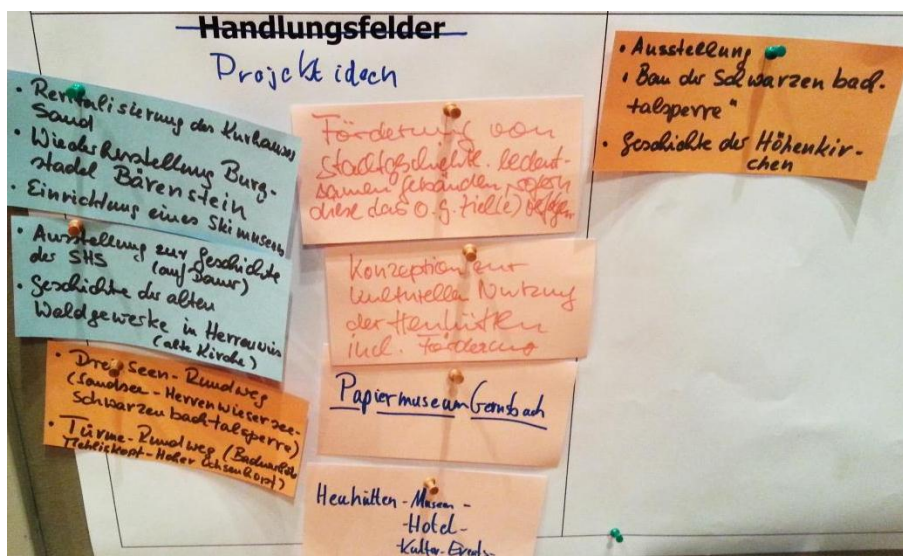 Handlungsfelder
Projektideen
• Revitalisierung des Kurhauses
Sand
• Wiederherstellung Burg-
stadel Bärenstein
• Einrichtung eines Skimuseums
• Ausstellung zur Geschichte
der SHS (auf Dauer)
• Geschichte der alten
Waldgewerke in Herrenwies
(alte Kirche)
• Drei-Seen-Rundweg
(Sandsee-Herrenwieser see-
Schwarzenbach-talsperre)
• Türme-Rundweg (Badener Höhe
Mehliskopf-Hoher Ochsenkopf)
Förderung von
stadtgeschichtl. bedeut-
samen Gebäuden, sofern
diese das o.g. Ziel(e)
Konzeption zur
kulturellen Nutzung
der Heuhütten
incl. Förderung
Papiermuseum Gernsbach
Heuhütten-Museum-
-Hotel-
-Kultur-Events
• Ausstellung
"Bau der Schwarzenbach-
talsperre"
• Geschichte der Höhenkir-
chen